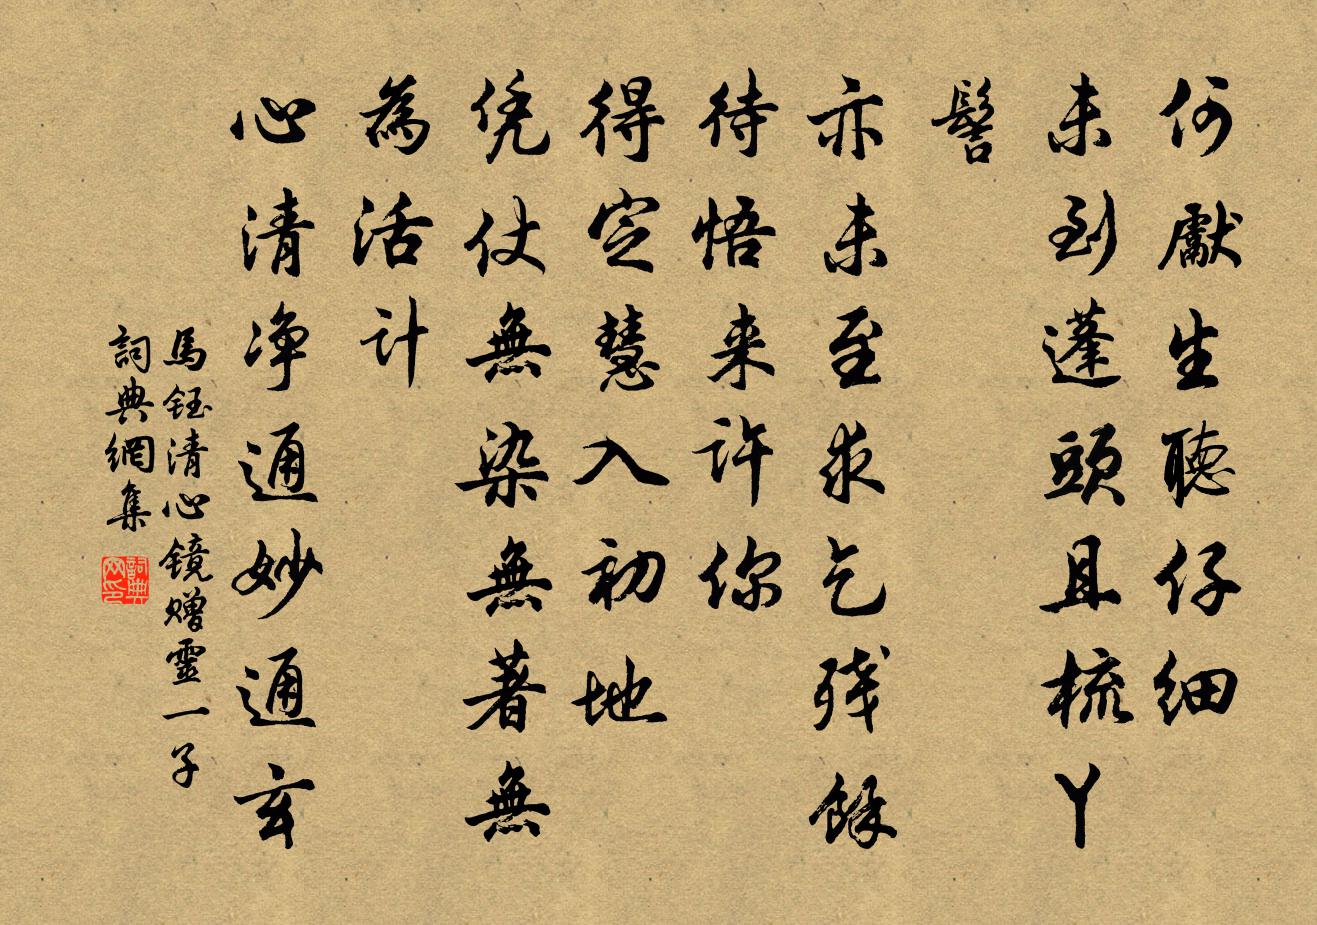 何獻生聽仔細
未到蓬頭且梳丫
髻
亦未至求乞残餘
待悟来许你
得定慧入初地
凭仗無染無著無
為活计
心清净通妙通玄
馬钰清心镜赠靈一子
詞典網集
詞典網印